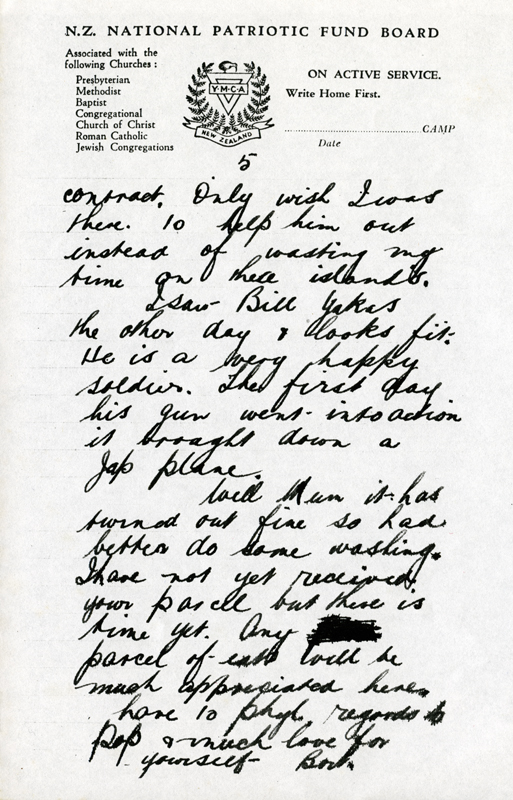 N.Z. NATIONAL PATRIOTIC FUND BOARD
Associated with the
following Churches :
Presbyterian
Methodist
Baptist
Congregational
Church of Christ
Roman Catholic
Jewish Congregations
Y·M·C·A
NEW ZEALAND
ON ACTIVE SERVICE.
Write Home First.
CAMP
Date
5
contract. Only wish I was
there. to help him out
instead of wasting my
time on these islands.
I saw Bill Yakas
the other day & looks fit.
He is a very happy
soldier. The first day
his gun went into action
it brought down a
Jap plane.
Well Mum it has
turned out fine so had
better do some washing.
I have not yet received
your parcel but there is
time yet. Any
parcel of eats will be
much appreciated here.
love to Phyl, regards to
Pop & much love for
yourself